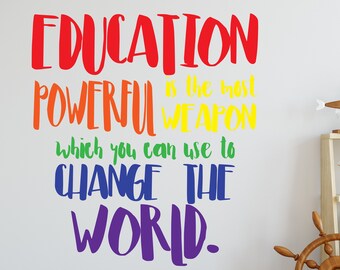 EDUCATION
POWERFUL is the most
WEAPON
which you can use to
CHANGE THE
WORLD.